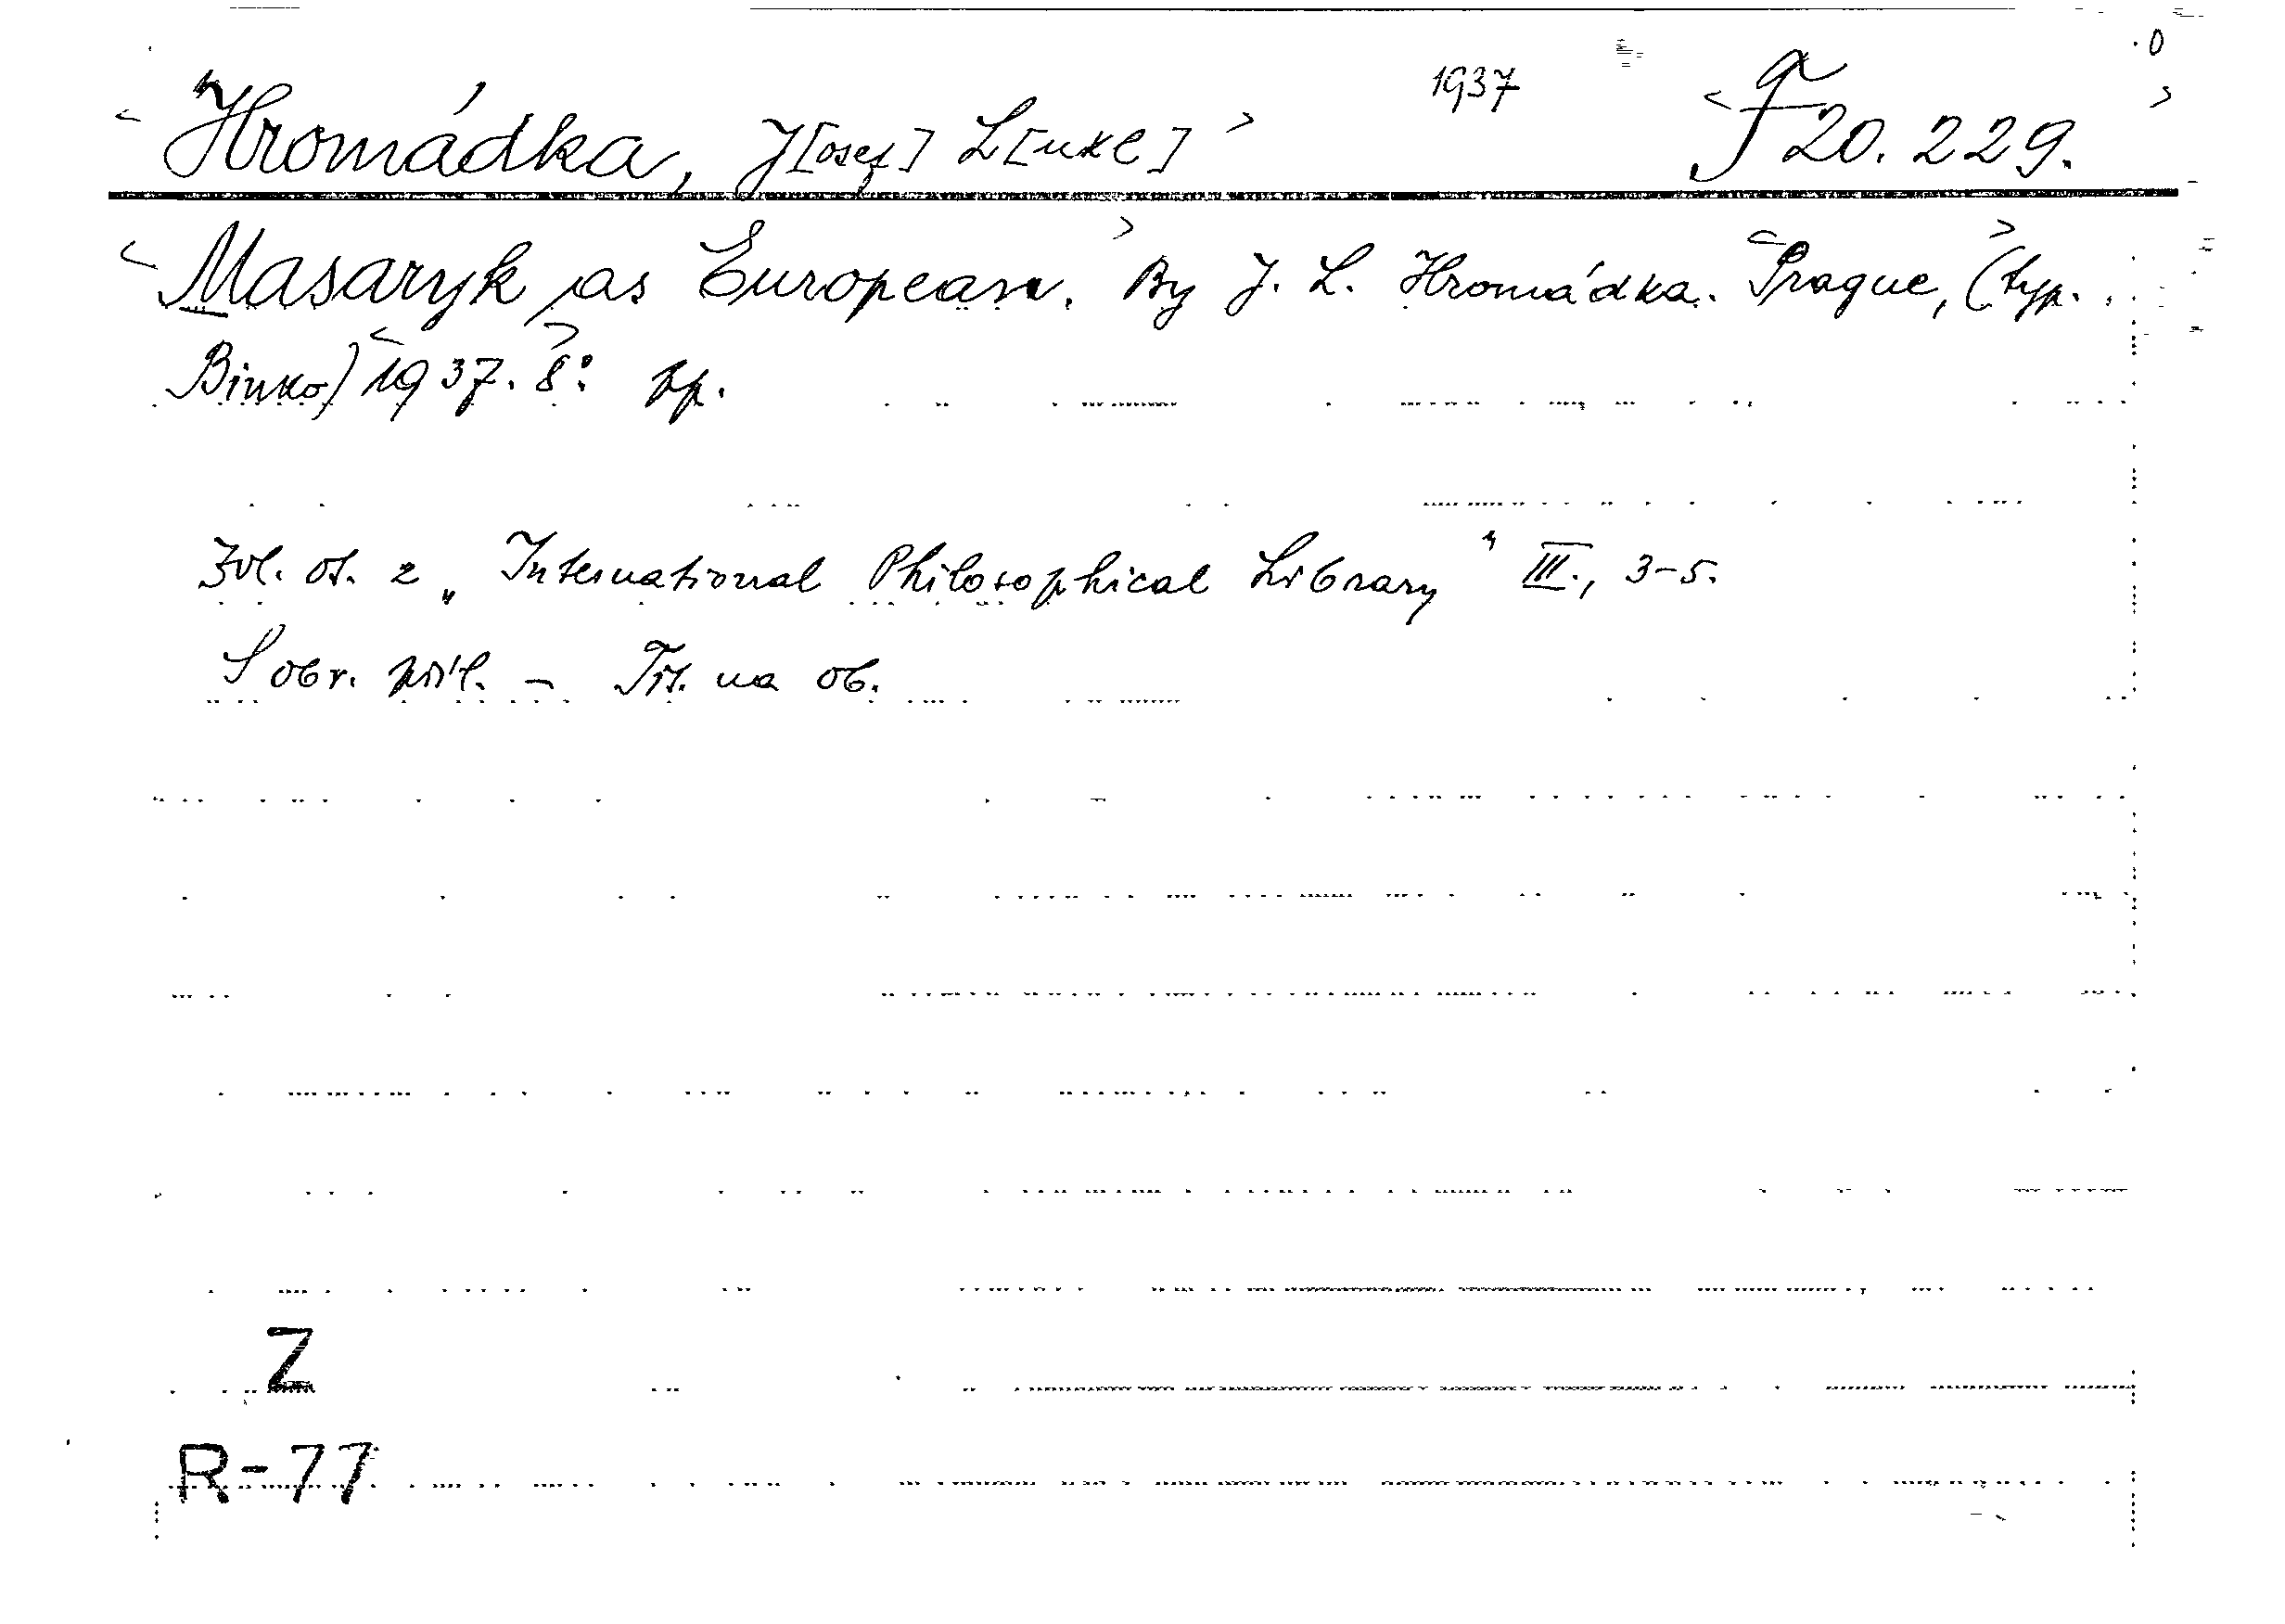 0
1937
< Hromádka, J[osef] L[ukl] > < F 20.229. >
< Masaryk as European. > By J. L. Hromádka. < Prague, > (typ.
Binko) < 1937. > 8°. pp.
Zvl. ot. z „International Philosophical Library" III., 3-5.
S obr. příl. - Tit. na ob.
Z
R-77